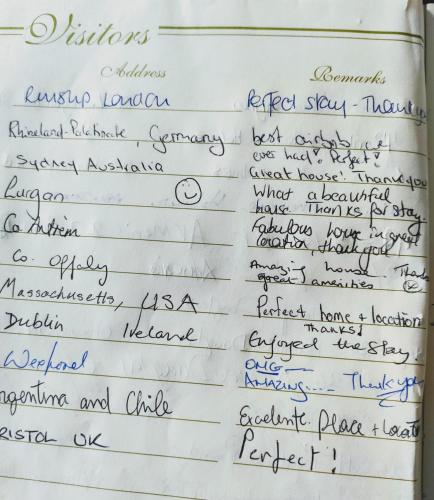 Visitors
Address Remarks
Ruislip London Perfect stay - Thank you
Rhineland-Palatinate, Germany best airbnb we
ever had! Perfect!
Sydney Australia Great house! Thank you
Lurgan What a beautiful
house Thanks for stay.
Co Antrim Fabulous house in great
location, thank you
Co. Offaly Amazing house. Thanks
great amenities
Massachusetts, USA Perfect home + location
Thanks!
Dublin Ireland Enjoyed the stay!
OMG
AMAZING.... Thank you
Argentina and Chile Excelente Place + Locat
RISTOL UK Perfect!